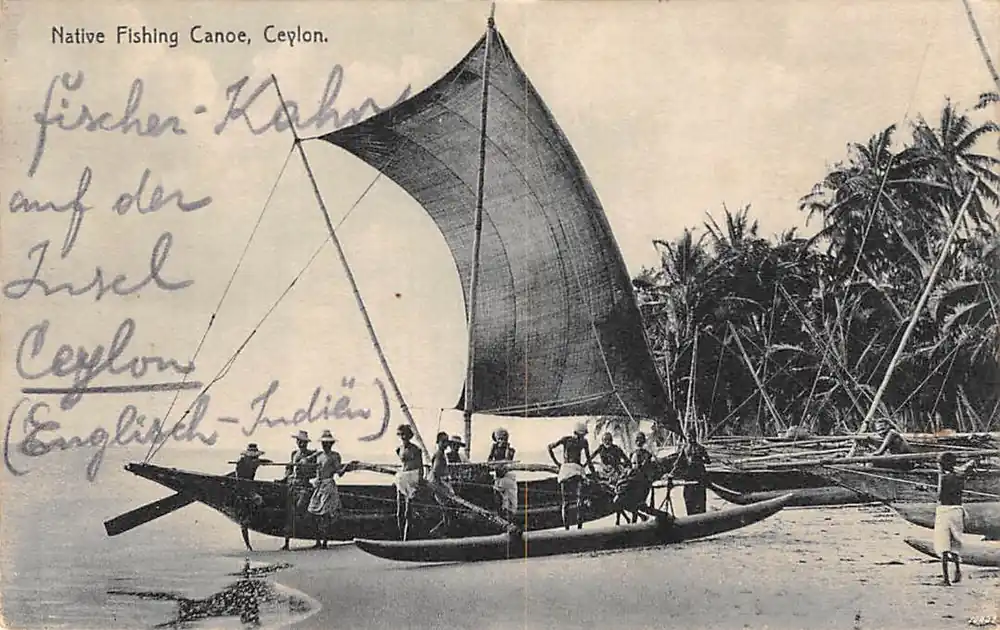 Native Fishing Canoe, Ceylon.
Fischer-Kahn
auf der
Insel
Ceylon
(Englisch-Indien)